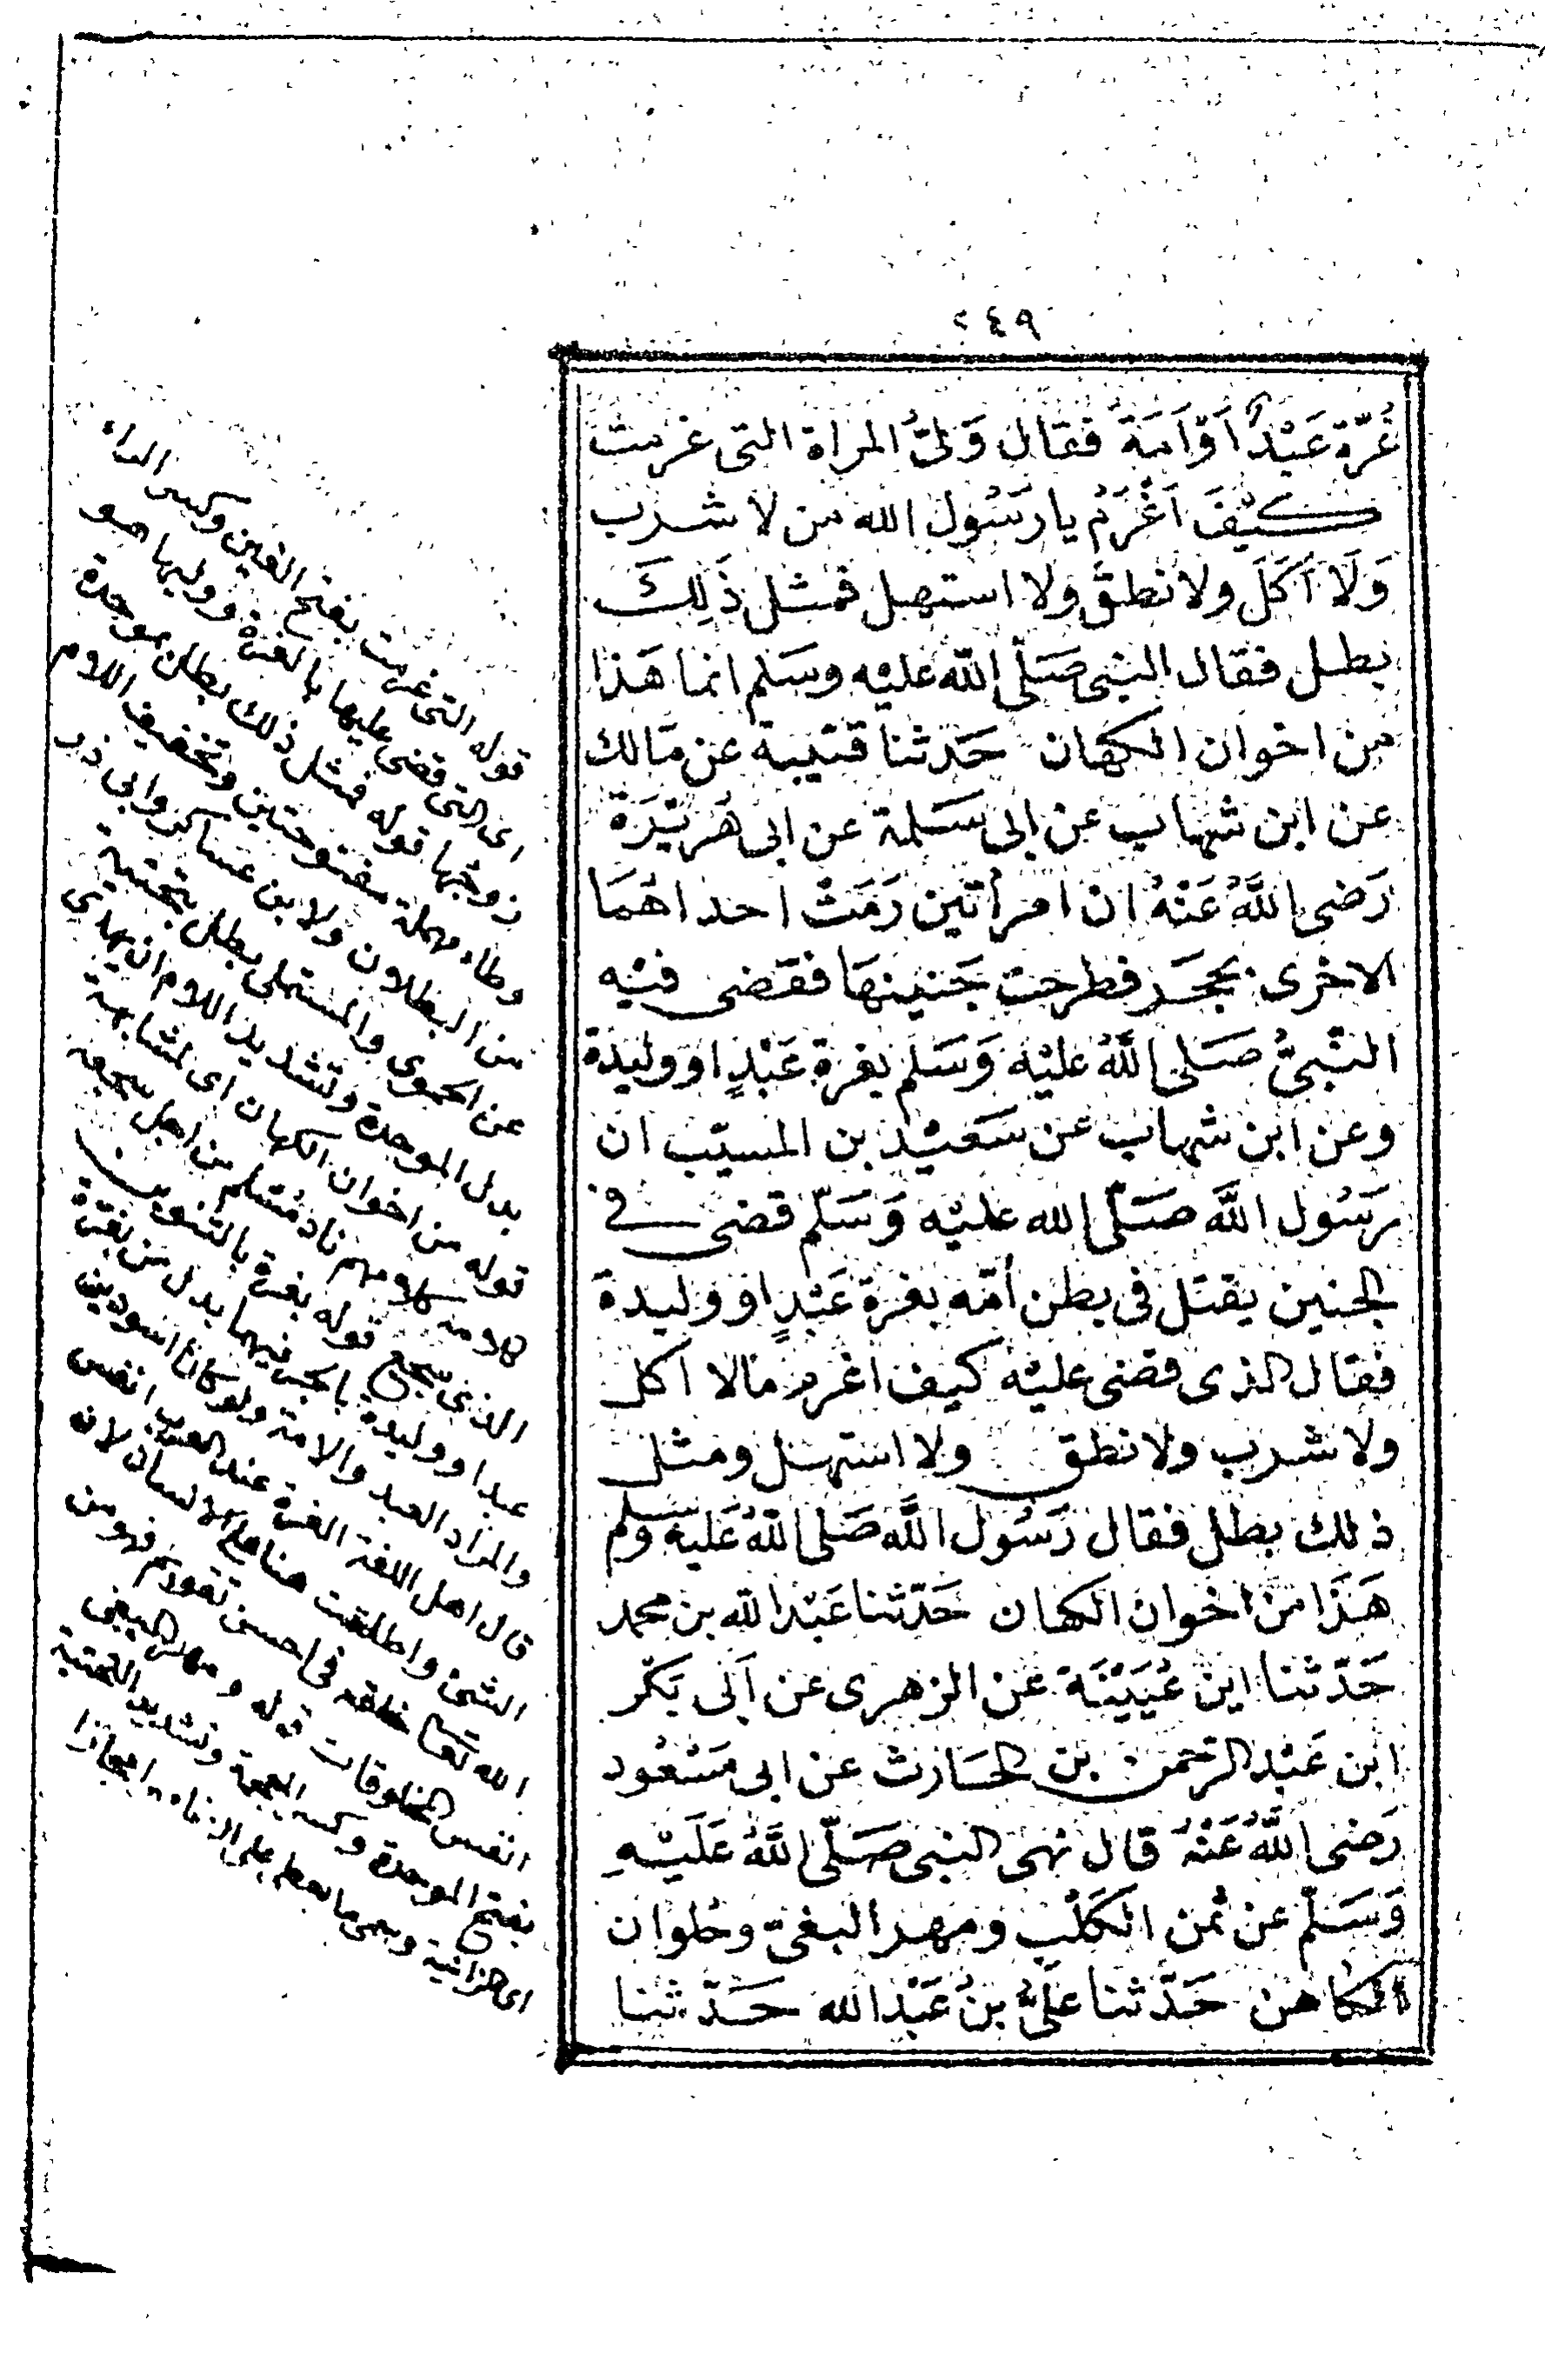 ٢٤٩
غُرّة عَبْدٌ اَوْ اَمَةٌ فقال وَلىُّ المراة التى غرمت
كَيْفَ اَغْرَمُ يا رَسُول الله من لا شرب
وَلَا اَكَلَ ولا نطق ولا استهل فمثل ذَلِكَ
بطل فقال النبى صَلّى الله عليْه وسَلم انما هَذا
من اخوان الكهان حَدثنا قتيبة عن مَالك
عن ابن شهاب عن ابى سَلمة عن ابى هُرَيْرَة
رَضى اللَّهُ عَنْهُ ان امرأتين رَمَتْ احداهُمَا
الاخرى بحجَر فطرحت جَنينهَا فقَضى فيْه
النَّبىُّ صَلى اللَّهُ عليْه وَسَلم بغرة عَبْدٍ او وليدة
وعن ابن شهاب عن سَعيْد بن المسيّب ان
رَسُول اللَّه صَلّى الله عليْه وَسَلّم قضى فى
الجنين يقتل فى بطن اُمّه بغرة عَبْدٍ او وليدة
فقال الذى قضى عليْه كيف اغرم مالا اكل
ولا شرب ولا نطق ولا استهل ومثل
ذلك بطل فقال رَسُول اللَّه صَلى اللَّهُ عَليه وسلم
هَذَا مِنَ اخوان الكهان حَدّثنا عَبْد الله بن محمد
حَدّثنا ابن عُيَيْنَة عن الزهرى عن اَبى بَكْر
ابن عَبْد الرَّحمن بن الحَارث عن ابى مَسْعُود
رَضى اللَّهُ عَنْهُ قال نهى النبى صَلّى اللَّهُ عَلَيْهِ
وَسَلّم عن ثمن الكَلْب ومهر البغىّ وحُلوان
الكاهن حَدّثنا علىُّ بنُ عَبْد الله حَدّثنا
قوله التى غرمت بفتح الغين وكسر الراء
اى التى قضى عليها بالغرة ووليها هو
زوجها قوله فمثل ذلك بطل بموحدة
وطاء مهملة مفتوحتين وتخفيف اللام
من البطلان ولابن عساكر وابى ذر
عن الحموى والمستملى يطل بتحتية
بدل الموحدة وتشديد اللام اى يهدر
قوله من اخوان الكهان اى لمشابهة
كلامه كلامهم زاد مسلم من اجل سجعه
الذى سجع قوله بغرة بالتنوين
عبد او وليدة بالجر فيهما بدل من بغرة
والمراد العبد والامة ولو كانا اسودين
قال اهل اللغة الغرة عند العرب انفس
الشئ واطلقت هنا على الانسان لانه
الله تعالى خلقه فى احسن تقويم فهو من
انفس المخلوقات قوله ومهر البغى
بفتح الموحدة وكسر المعجمة وتشديد التحتية
اى الزانية وهى ما يعطى على الزنا مجازا